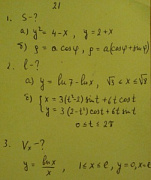 21
1. S-?
а) y² = 4-x, y = 2+x
б) ρ = a cos φ, ρ = a(cos φ + sin φ)
2. l-?
а) y = ln 7 - ln x, √3 ≤ x ≤ √8
б) { x = 3(t²-2) sin t + 6t cos t
y = 3(2-t²) cos t + 6t sin t
0 ≤ t ≤ 2π
3. Vₓ-?
y = ln x / x, 1 ≤ x ≤ e, y = 0, x =